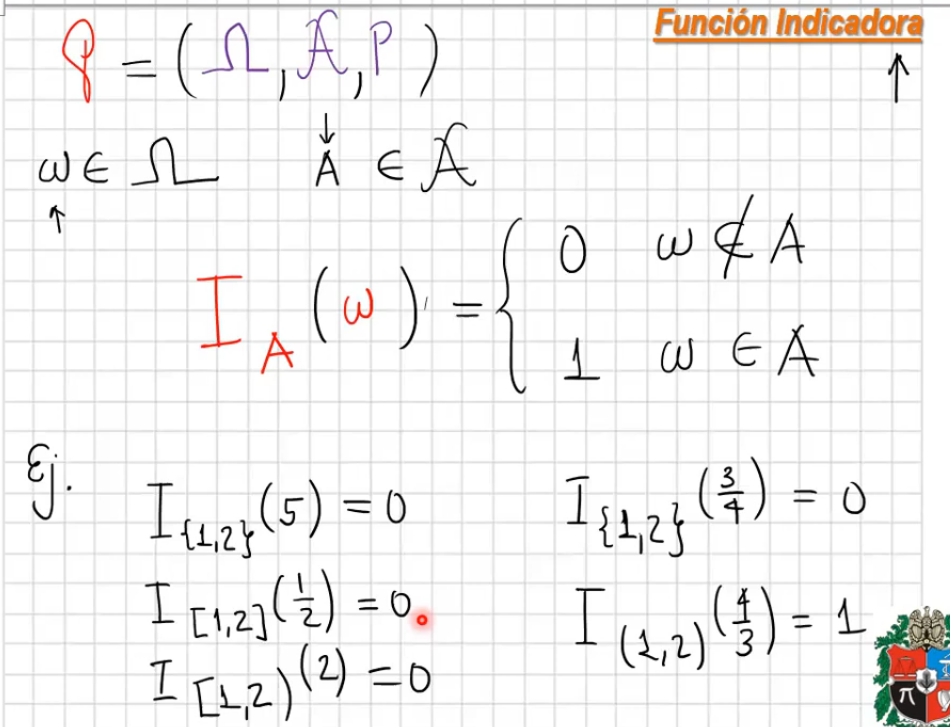 Función Indicadora
℘ = (Ω, 𝒜, P)
ω ∈ Ω   A ∈ 𝒜
I_A(ω) = { 0   ω ∉ A
1   ω ∈ A
Ej.
I_{1,2}(5) = 0   I_{1,2}(3/4) = 0
I_[1,2](1/2) = 0   I_(1,2)(4/3) = 1
I_[1,2)(2) = 0
π